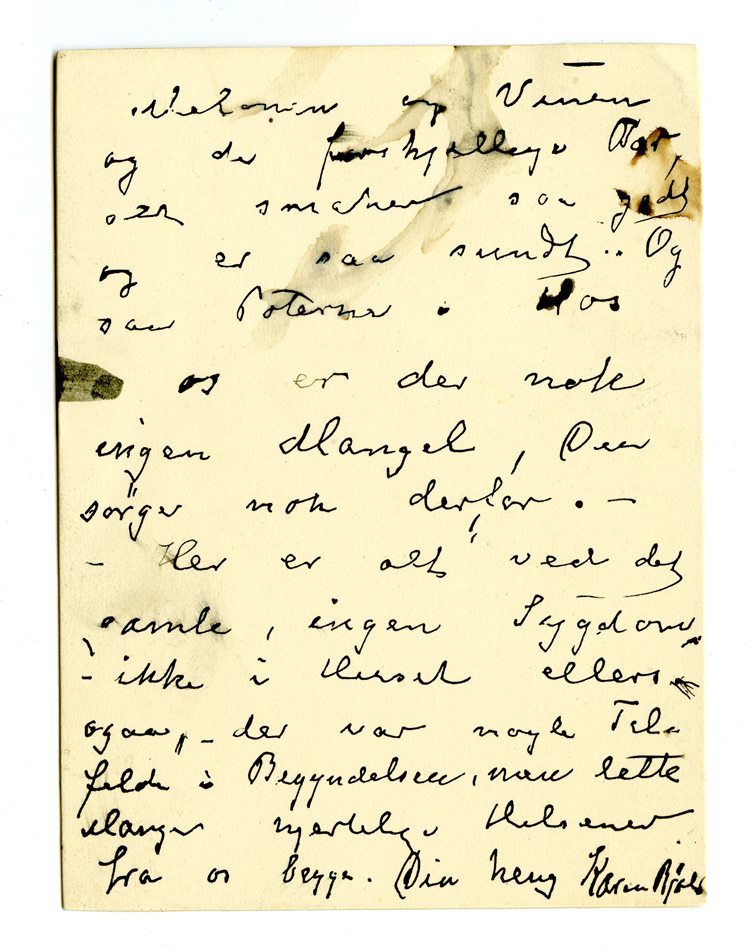 og Vinen
og de forskjellige
smaker saa godt
og er saa sundt .. Og
saa Poterne . Hos
os er der nok
ingen Mangel, Du
sørger nok derfor . –
– Her er alt ved det
samle, ingen Sygdom
– ikke i Huset ellers
ogaa, – der var nogle Til-
felde i Begyndelsen, men lette
Mange hjertelige Helsener
fra os begge. Din heng Karen